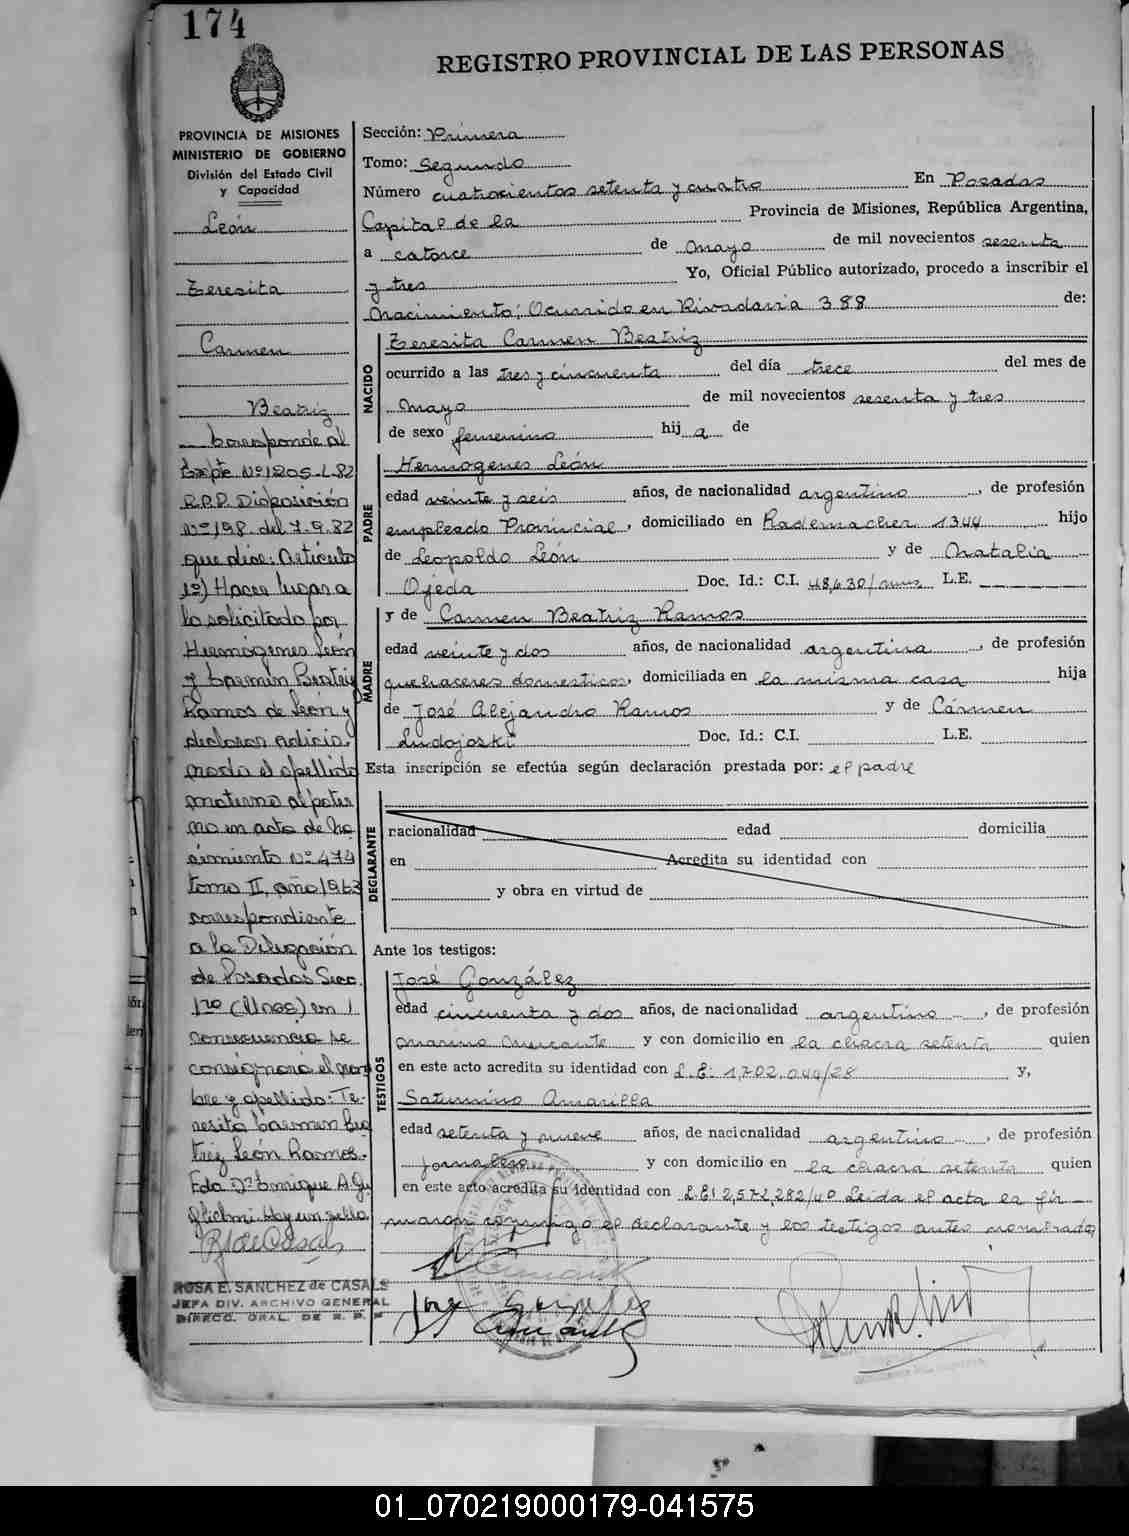 174
REGISTRO PROVINCIAL DE LAS PERSONAS
PROVINCIA DE MISIONES
MINISTERIO DE GOBIERNO
División del Estado Civil
y Capacidad
León
Teresita
Carmen
Beatriz
Corresponde al
Expte. Nº 1205-L-82
R.P.P. Disposición
Nº 198 del 7.9.82
que dice: Artículo
1º) Hacer lugar a
lo solicitado por
Hermógenes León
y Carmen Beatriz
Ramos de León y
declarar adicio-
nado el apellido
materno al pater
no en acta de na-
cimiento Nº 474
tomo II, año 1963
correspondiente
a la Delegación
de Posadas Secc.
1ra (Unos) en
consecuencia se
consignará el nom
bre y apellido: Te-
resita Carmen Bea
triz León Ramos.-
Fdo Dr Enrique A. Gu
glielmi. Hay un sello.
ROSA E. SANCHEZ de CASALS
JEFA DIV. ARCHIVO GENERAL
DIRECC. GRAL. DE R. P. P.
Sección: Primera
Tomo: Segundo
Número cuatrocientos setenta y cuatro En Posadas
Capital de la Provincia de Misiones, República Argentina,
a catorce de mayo de mil novecientos sesenta
y tres Yo, Oficial Público autorizado, procedo a inscribir el
Nacimiento; Ocurrido en Rivadavia 388 de:
NACIDO
Teresita Carmen Beatriz
ocurrido a las tres y cincuenta del día trece del mes de
mayo de mil novecientos sesenta y tres
de sexo femenino hija de
PADRE
Hermogenes León
edad veinte y seis años, de nacionalidad argentino, de profesión
empleado Provincial, domiciliado en Rademacher 1344 hijo
de Leopoldo León y de Natalia
Ojeda Doc. Id.: C.I. 48,630/mnes L.E.
MADRE
y de Carmen Beatriz Ramos
edad veinte y dos años, de nacionalidad argentina, de profesión
quehaceres domesticos, domiciliada en la misma casa hija
de José Alejandro Ramos y de Cármen
Ludojoski Doc. Id.: C.I. L.E.
Esta inscripción se efectúa según declaración prestada por: el padre
DECLARANTE
nacionalidad edad domicilia
en Acredita su identidad con
y obra en virtud de
Ante los testigos:
TESTIGOS
José González
edad cincuenta y dos años, de nacionalidad argentino, de profesión
marino mercante y con domicilio en la chacra setenta quien
en este acto acredita su identidad con L.E: 1,702.044/28 y,
Saturnino Amarilla
edad setenta y nueve años, de nacionalidad argentino, de profesión
jornalero y con domicilio en la chacra setenta quien
en este acto acredita su identidad con L.E! 2,572,282/40 Leida el acta la fir-
maron conmigo el declarante y los testigos antes nombrados
01_070219000179-041575